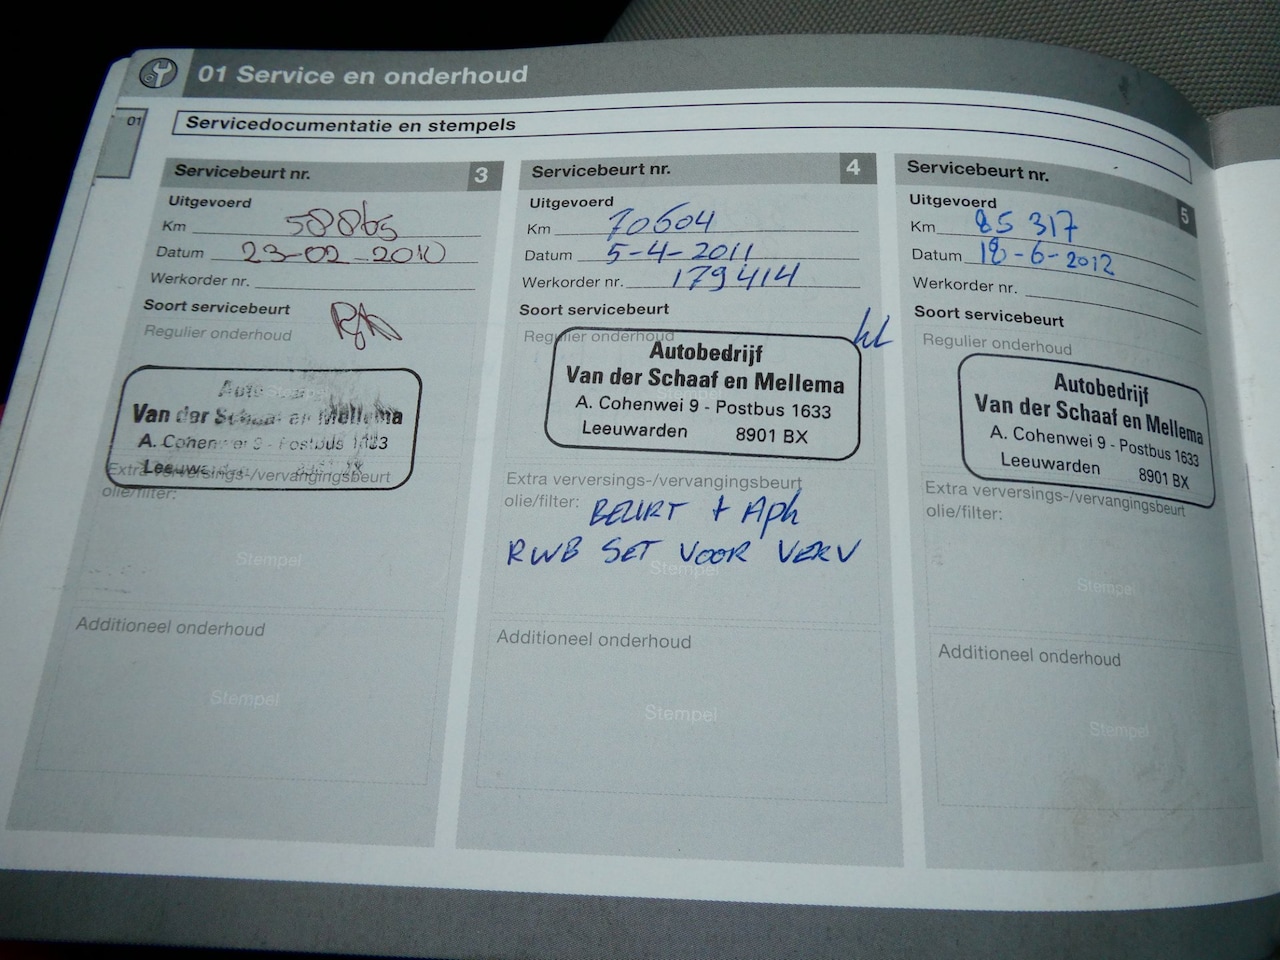 01 Service en onderhoud
01
Servicedocumentatie en stempels
Servicebeurt nr. 3
Uitgevoerd
Km 58865
Datum 23-02-2010
Werkorder nr.
Soort servicebeurt
Regulier onderhoud
Van der Schaaf en Mellema
A. Cohenwei 9 - Postbus 1633
Leeuwarden
Extra verversings-/vervangingsbeurt
olie/filter:
Stempel
Additioneel onderhoud
Stempel
Servicebeurt nr. 4
Uitgevoerd
Km 70604
Datum 5-4-2011
Werkorder nr. 179414
Soort servicebeurt
Regulier onderhoud
Autobedrijf
Van der Schaaf en Mellema
A. Cohenwei 9 - Postbus 1633
Leeuwarden 8901 BX
Extra verversings-/vervangingsbeurt
olie/filter: BEURT + Apk
RWB SET VOOR VERV
Stempel
Additioneel onderhoud
Stempel
Servicebeurt nr. 5
Uitgevoerd
Km 85317
Datum 18-6-2012
Werkorder nr.
Soort servicebeurt
Regulier onderhoud
Autobedrijf
Van der Schaaf en Mellema
A. Cohenwei 9 - Postbus 1633
Leeuwarden 8901 BX
Extra verversings-/vervangingsbeurt
olie/filter:
Stempel
Additioneel onderhoud
Stempel